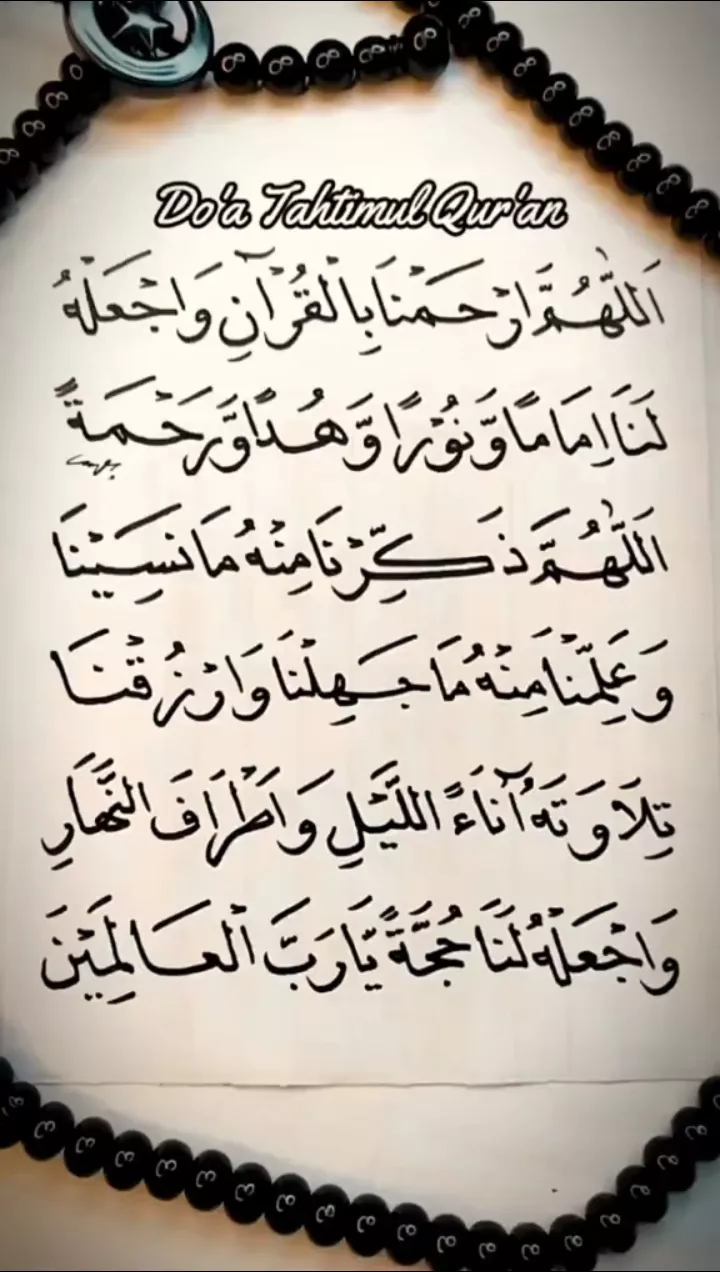 Do'a Tahtimul Qur'an
اَللّٰهُمَّ ارْحَمْنَا بِالْقُرْآنِ وَاجْعَلْهُ
لَنَا اِمَامًا وَّنُوْرًا وَّهُدًا وَّرَحْمَةً
اَللّٰهُمَّ ذَكِّرْنَا مِنْهُ مَا نَسِيْنَا
وَعَلِّمْنَا مِنْهُ مَا جَهِلْنَا وَارْزُقْنَا
تِلَاوَتَهُ آنَاءَ اللَّيْلِ وَاَطْرَافَ النَّهَارِ
وَاجْعَلْهُ لَنَا حُجَّةً يَّارَبَّ الْعَالَمِيْنَ